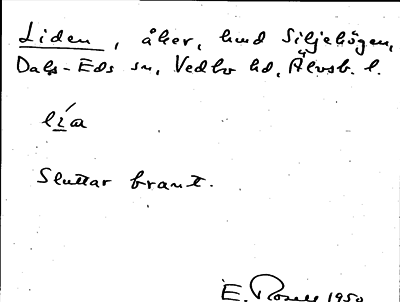 Liden, åker, hmd Siljehögen,
Dals-Eds sn, Vedbo hd, Älvsb. l.
lía
Sluttar brant.
E. Rosell 1950